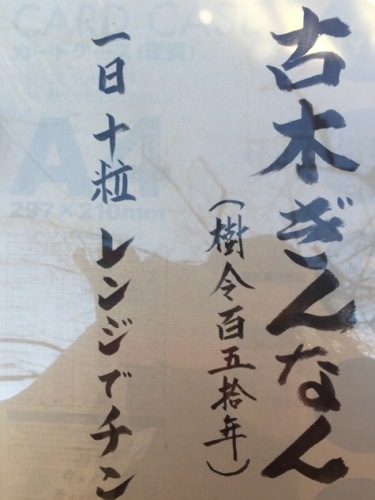 古木ぎんなん
(樹令百五拾年)
一日十粒 レンジでチン
CARD CASE
A4
297×210mm